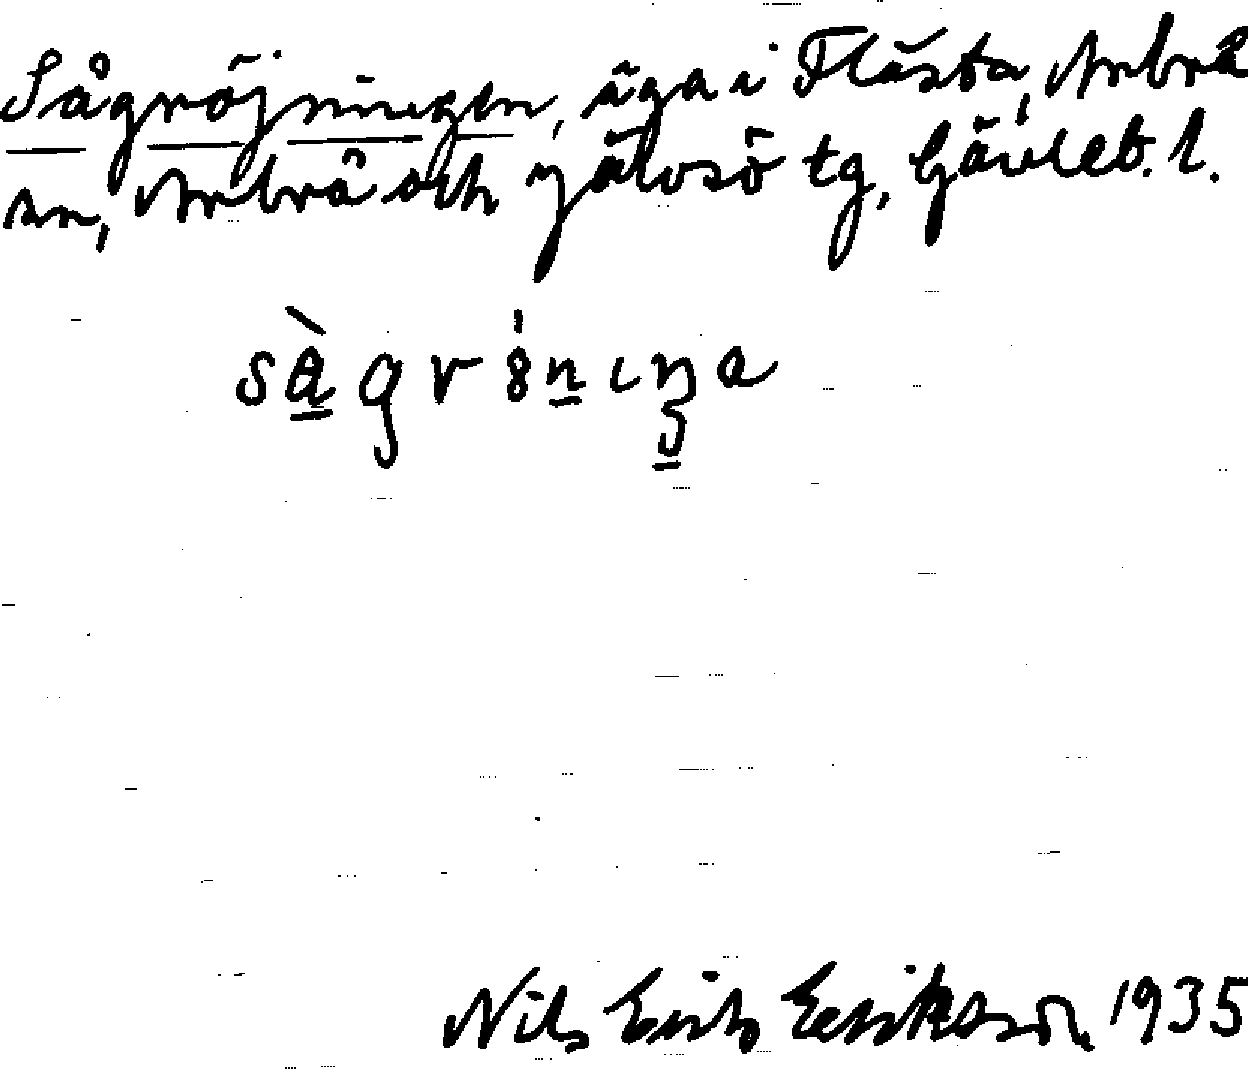 Sågröjningen, äga i Flästa, Arbrå
sn, Arbrå och Järvsö tg, Gävleb. l.
Nils Erik Eriksson 1935